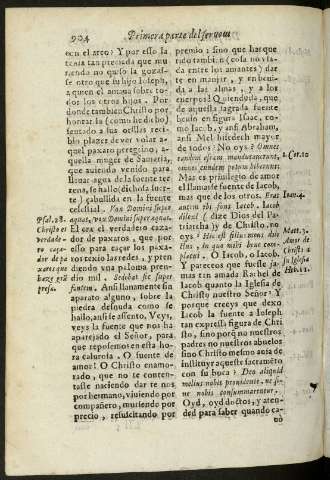 904
Primera parte del sermon
con el arco? Y por esso la
tenia tan preciada que mu
riendo no quiso la gozas-
se otro que su hijo Ioseph,
a quien el amaua sobre to-
dos los otros hijos. Por
donde tambien Christo por
honrar la (como he dicho)
sentado a sus orillas recibio
plazer de ver volar a-
quel paxaro peregrino, a-
quella muger de Samaria,
que auienda venido para
lleuar agua de la fuente ter
rena, se hallo (dichosa suer-
te) çabullida en la fuente
celestial. Vox Domini super
aquas, vox Domini super aquas.
El era el verdadero caza-
dor de paxaros, que por-
esso para cogerlos les pu-
so texio las redes, y pren
diendo vna paloma pren-
dio mil. Sedebat sic super
fontem. Ansi llanamente sin
aparato alguno, sobre la
piedra desnuda como se
hallo, ansi se assento. Veys,
veys la fuente que nos ha
aparejado el Señor, para
que reposemos en esta ho-
ra calurosa. O fuente de
amor! O Christo enamo-
rado, que no te conten-
taste naciendo dar te nos
por hermano, viuiendo por
compañero, muriendo por
precio, resucitando por
Psal. 28.
Christo es
verdade-
ro caça-
dor de pa
xaros que
haze grã
presa.
premio: sino que has que
rido tambien (cosa no vsa-
da entre los amantes) dar
te en manjar, y entrar te
a las almas, y a los
cuerpos! Quien duda, que
de aquella sagrada fuente
beuio en figura Isaac, co-
mo Iacob, y ansi Abraham,
ansi Melchisedech mayor
de todos? No oys? Omnes
eandem escam manducauerunt,
omnes eundem potum biberunt.
Mas es priuilegio de amor
el llamarse fuente de Iacob,
mas que de los otros. Erat
autem ibi fons Iacob. Iacob
dilexi (dize Dios del Pa-
triarcha) y de Christo, no
oys? Hic est filius meus dile
ctus, in quo mihi bene com-
placui. O Iacob, o Iacob.
Y pareceos que fuesse ja-
mas tan amada Rachel de
Iacob quanto la Iglesia de
Christo nuestro Señor? Y
porque creys que dexo
Iacob la fuente a Ioseph
tan expressa figura de Chri
sto, sino porque no nuestros
padres no nuestros abuelos
sino Christo mesmo auia de
instituyr aqueste sacramẽto
con su boca? Deo aliquid
melius nobis prouidente, ne si-
ne nobis consummarentur.
Oyd, oyd doctos, y aten-
ded para saber quando ca-
1. Cor. 10
Ioan. 4.
Matt. 3.
Amor de
Christo a
su Iglesia
Heb. 11.
uo